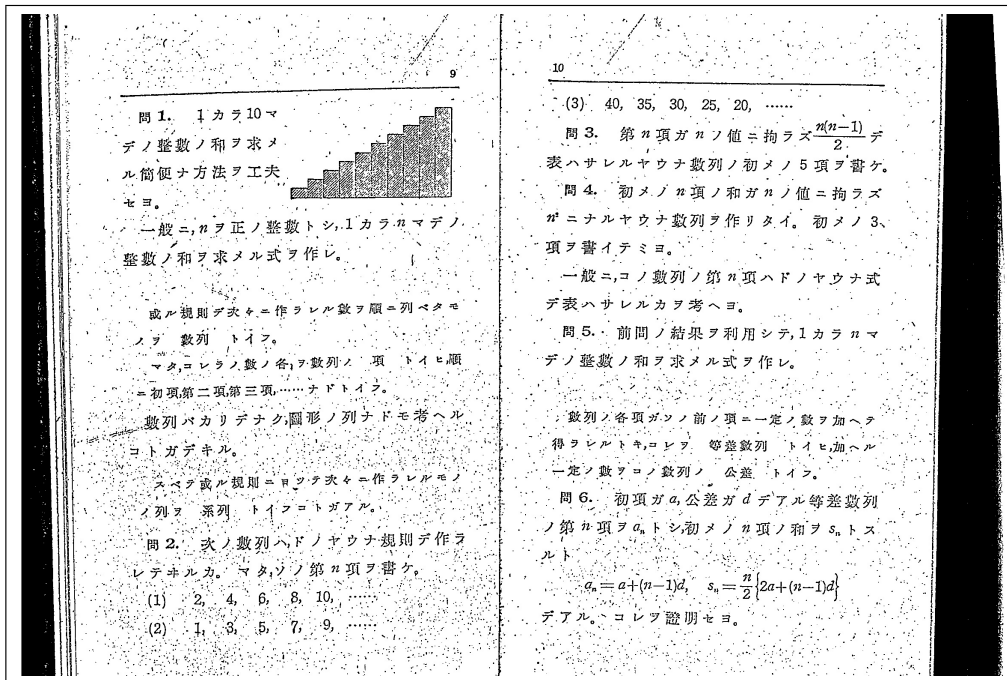 9
問1. 1カラ10マ
デノ整數ノ和ヲ求メ
ル簡便ナ方法ヲ工夫
セヨ。
一般ニ,nヲ正ノ整數トシ,1カラnマデノ
整數ノ和ヲ求メル式ヲ作レ。
或ル規則デ次々ニ作ラレル數ヲ順ニ列ベタモ
ノヲ 數列 トイフ。
マタ,コレラノ數ノ各〻ヲ數列ノ 項 トイヒ,順
ニ初項,第二項,第三項,……ナドトイフ。
數列バカリデナク,圖形ノ列ナドモ考ヘル
コトガデキル。
スベテ或ル規則ニヨツテ次々ニ作ラレルモノ
ノ列ヲ 系列 トイフコトガアル。
問2. 次ノ數列ハ,ドノヤウナ規則デ作ラ
レテヰルカ。 マタ,ソノ第n項ヲ書ケ。
(1) 2, 4, 6, 8, 10, ……
(2) 1, 3, 5, 7, 9, ……
10
(3) 40, 35, 30, 25, 20, ……
問3. 第n項ガnノ値ニ拘ラズ n(n−1)/2 デ
表ハサレルヤウナ數列ノ初メノ5項ヲ書ケ。
問4. 初メノn項ノ和ガnノ値ニ拘ラズ
n²ニナルヤウナ數列ヲ作リタイ。 初メノ3
項ヲ書イテミヨ。
一般ニ,コノ數列ノ第n項ハドノヤウナ式
デ表ハサレルカヲ考ヘヨ。
問5. 前問ノ結果ヲ利用シテ,1カラnマ
デノ整數ノ和ヲ求メル式ヲ作レ。
數列ノ各項ガソノ前ノ項ニ一定ノ數ヲ加ヘテ
得ラレルトキ,コレヲ 等差數列 トイヒ,加ヘル
一定ノ數ヲコノ數列ノ 公差 トイフ。
問6. 初項ガa,公差ガdデアル等差數列
ノ第n項ヲaₙトシ,初メノn項ノ和ヲsₙトス
ルト
aₙ=a+(n−1)d, sₙ=n/2{2a+(n−1)d}
デアル。 コレヲ證明セヨ。